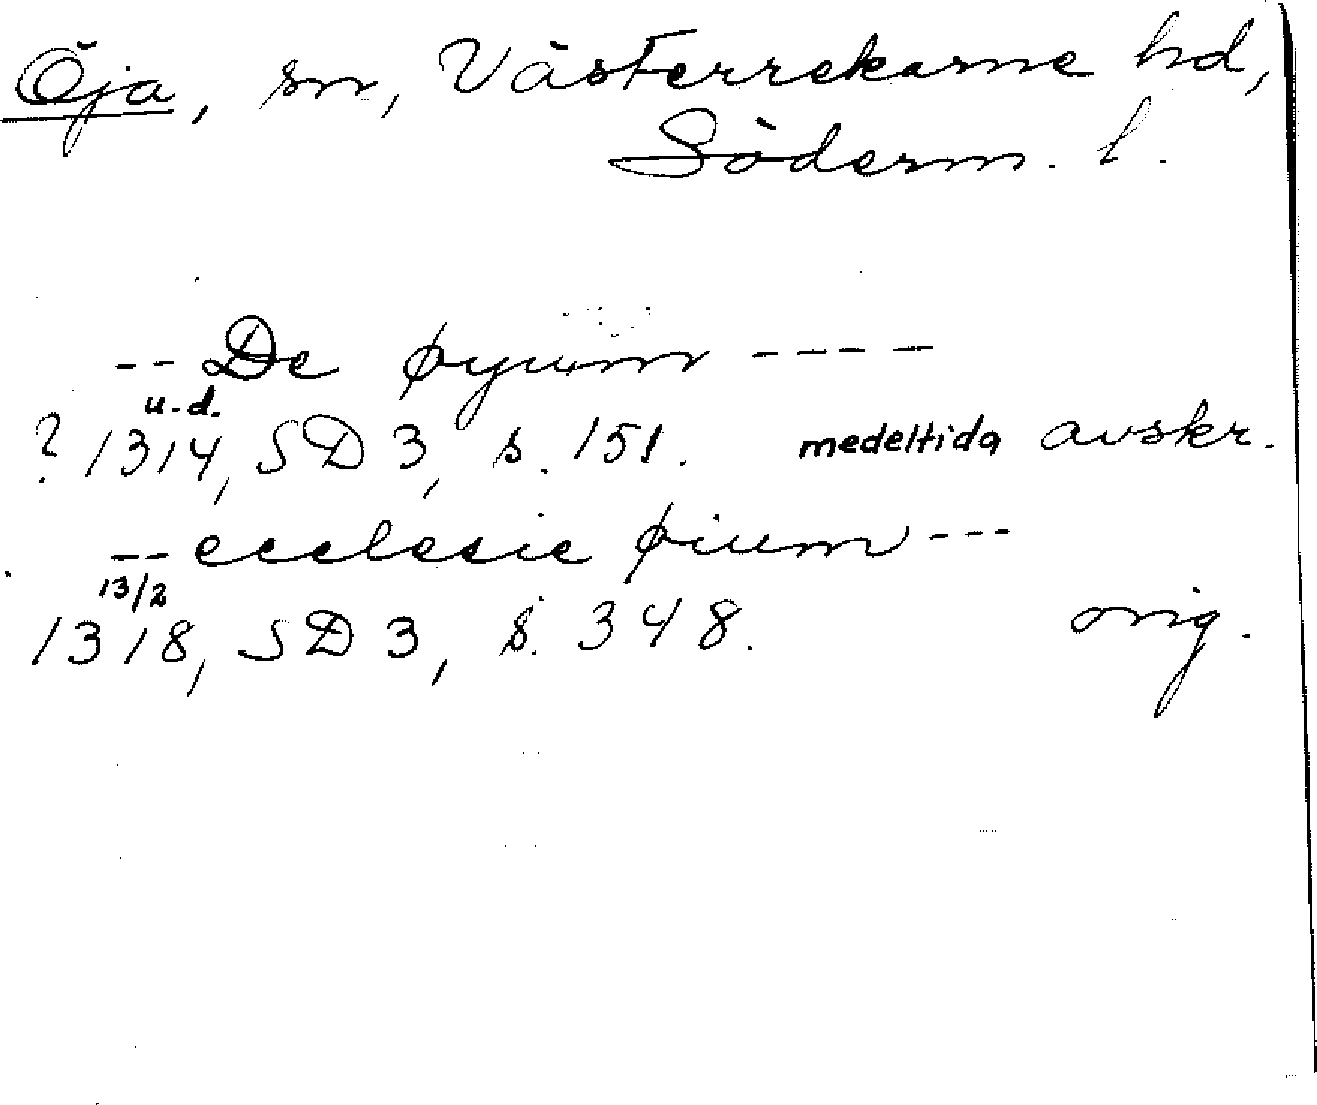 Öja, sn, Västerrekarne hd,
Söderm. l.
-- De øyum ----
u.d.
? 1314, SD 3, s. 151. medeltida avskr.
-- ecclesie øium ---
13/2
1318, SD 3, s. 348. orig.